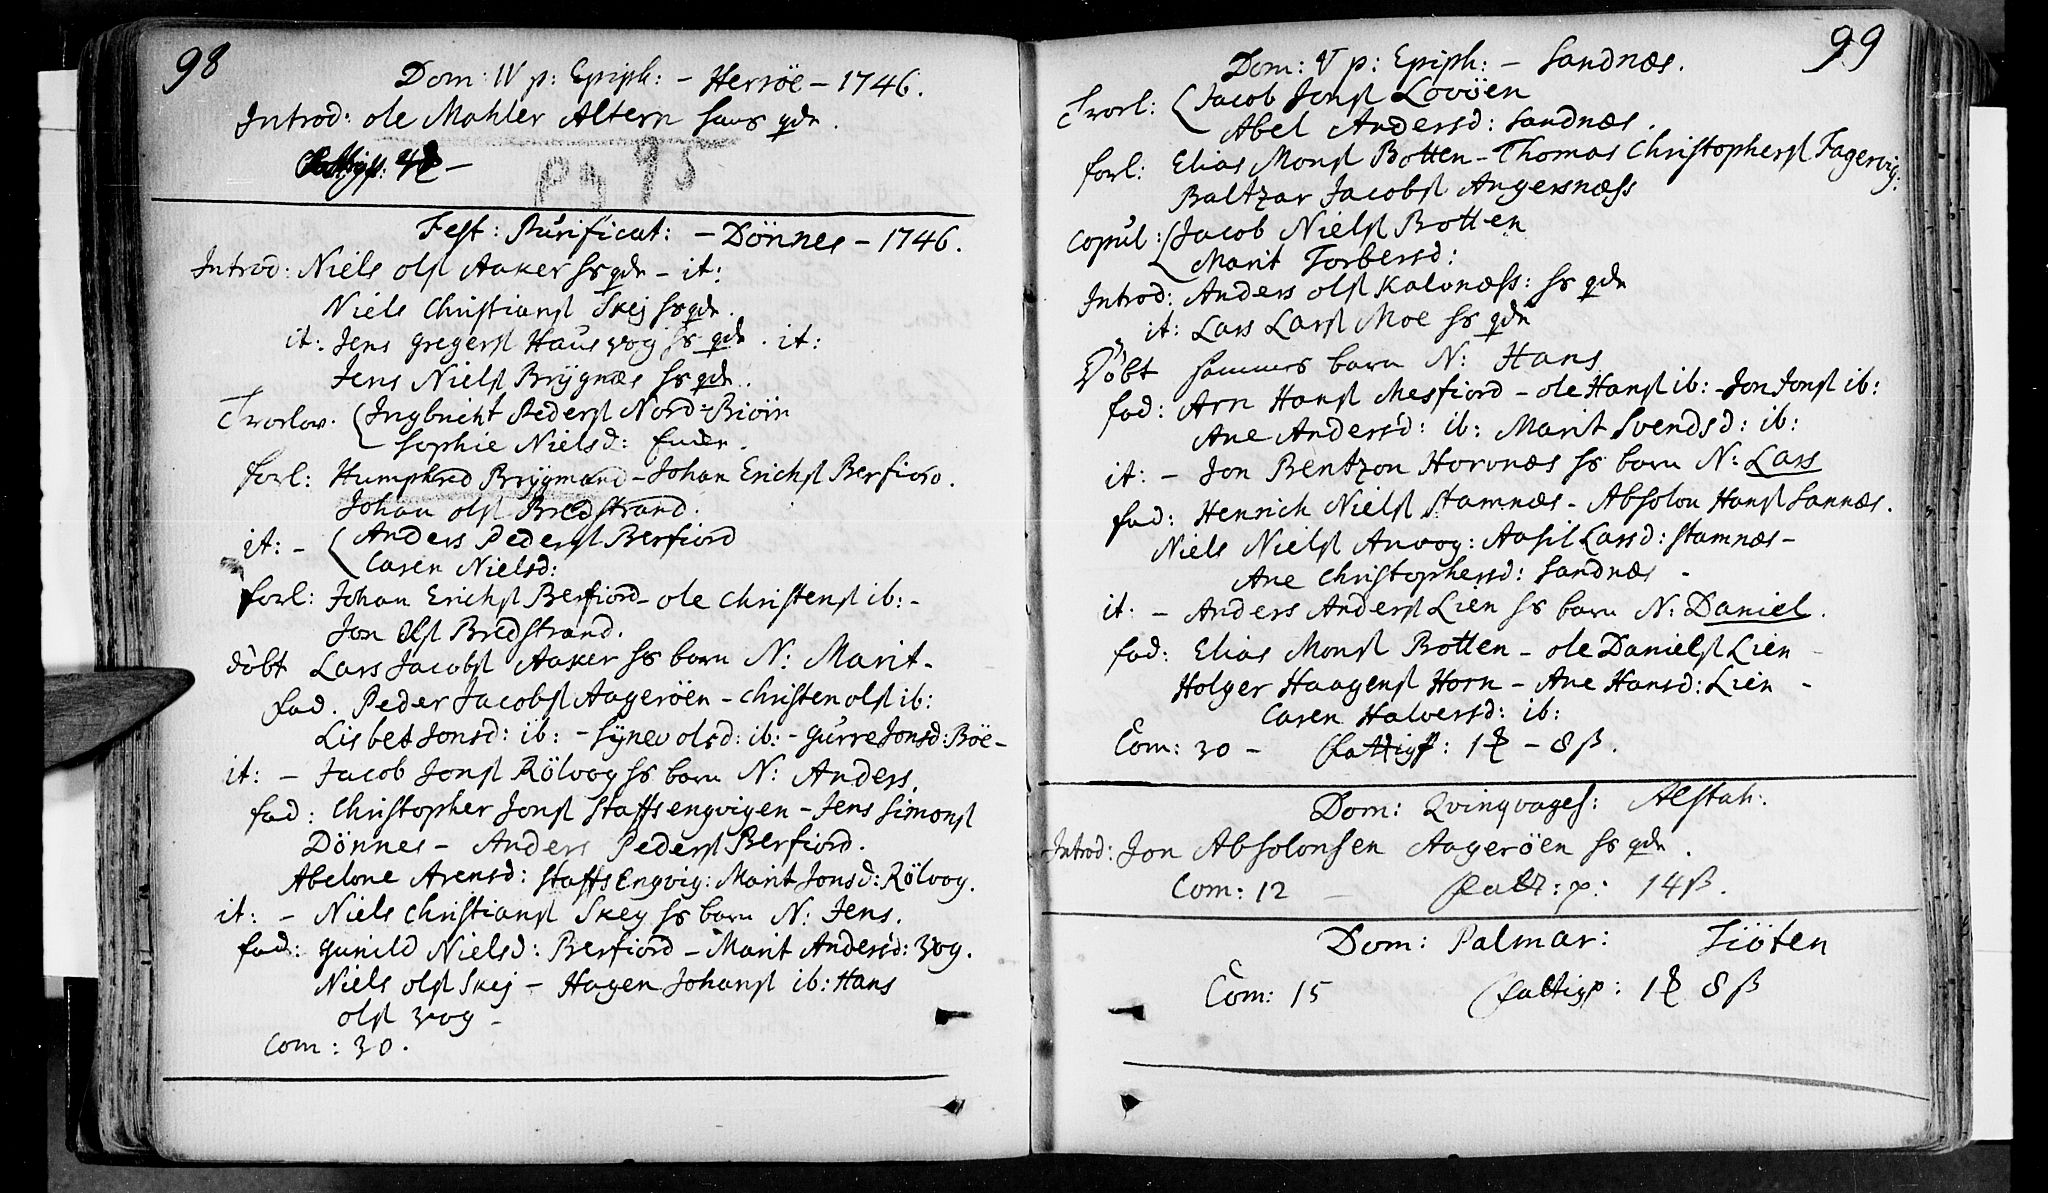 98
Dom: IV p: Epiph: - Herrøe - 1746.
Introd: ole Mahler Altern hans qde.
pag 95
Fest: Purificat: - Dönnes - 1746.
Introd: Niels olſ Aaker hs qde - it:
Niels Christianſ Skej hs qde.
it: Jens gregerſ Hausvog hs qde. it:
Jens Nielſ Brÿgnæs hs qde.
Trorlov. Ingbricht Pederſ Nord-Biöin
Sophie Nielsd:
forl: Humphred Brÿgmand - Johan Erichſ Berfiord.
Johan olſ Bredstrand.
it: - Anders Pederſ Berfiord
Caren Nielsd:
forl: Johan Erichſ Berfiord - ole christenſ ib: -
Jon Olſ Bredstrand.
döbt Lars Jacobſ Aaker hs barn N: Marit -
fad. Peder Jacobſ Aageröen - christen olſ ib:
Lisbet Jonsd: ib: - Sÿnev olsd: ib: - Gurre Jonsd: Böe -
it: - Jacob Jonſ Rölvog hs barn N: Anders.
fad: Christopher Jonſ Staffsengvigen - Jens Simonſ
Dönnes - Anders Pederſ Berfiord.
Abelone Arensd: Staffsengvig: Marit Jonsd: Rölvog.
it: - Niels christianſ Skey hs barn N: Jens.
fad: gunild Nielsd: Berfiord - Marit Andersd: Zvog.
Niels olſ Skej - Hagen Johanſ ib: Hans
olſ Zvog -
Com: 30.
99
Dom: V p: Epiph: - Sandnæs.
Trorl: Jacob Jonſ Lovöen
Abel Andersd: Sandnæs.
forl: Elias Monſ Botten - Thomas Christopherſ Fagervig:
Baltzar Jacobſ Angersnæss
Copul: Jacob Nielſ Botten
Marit Torbersd:
Introd: Anders olſ Kalvnæss: hs qde
it: Lars Larſ Moe hs qde
Döbt sammes barn N: Hans
fad: Arn Hanſ Mesfiord - ole Hanſ ib: - Jon Jonſ ib:
Ane Andersd: ib: Marit Svendsd: ib:
it: - Jon Bentzon Horvnæs hs barn N: Lars
fad: Henrich Nielſ Stamnæs - Absolon Hanſ Sannæs.
Niels Nielſ Anvog: Aasil Larsd: Stamnæs -
Ane Christophersd: Sandnæs -
it: - Anders Anderſ Lien hs barn N: Daniel.
fad: Elias Monſ Botten - ole Danielſ Lien -
Holger Haagenſ Horn - Ane Hansd: Lien -
Caren Halversd: ib:
Com: 30 - fattigp: 1 - 8 ß.
Dom: Qvinqvages: Alstah:
Introd: Jon Absolonsen Aageröen hs qde.
Com: 12 - fatt: p: 14 ß.
Dom: Palmar: Tiöten
Com: 15 fattigp: 1 8 ß